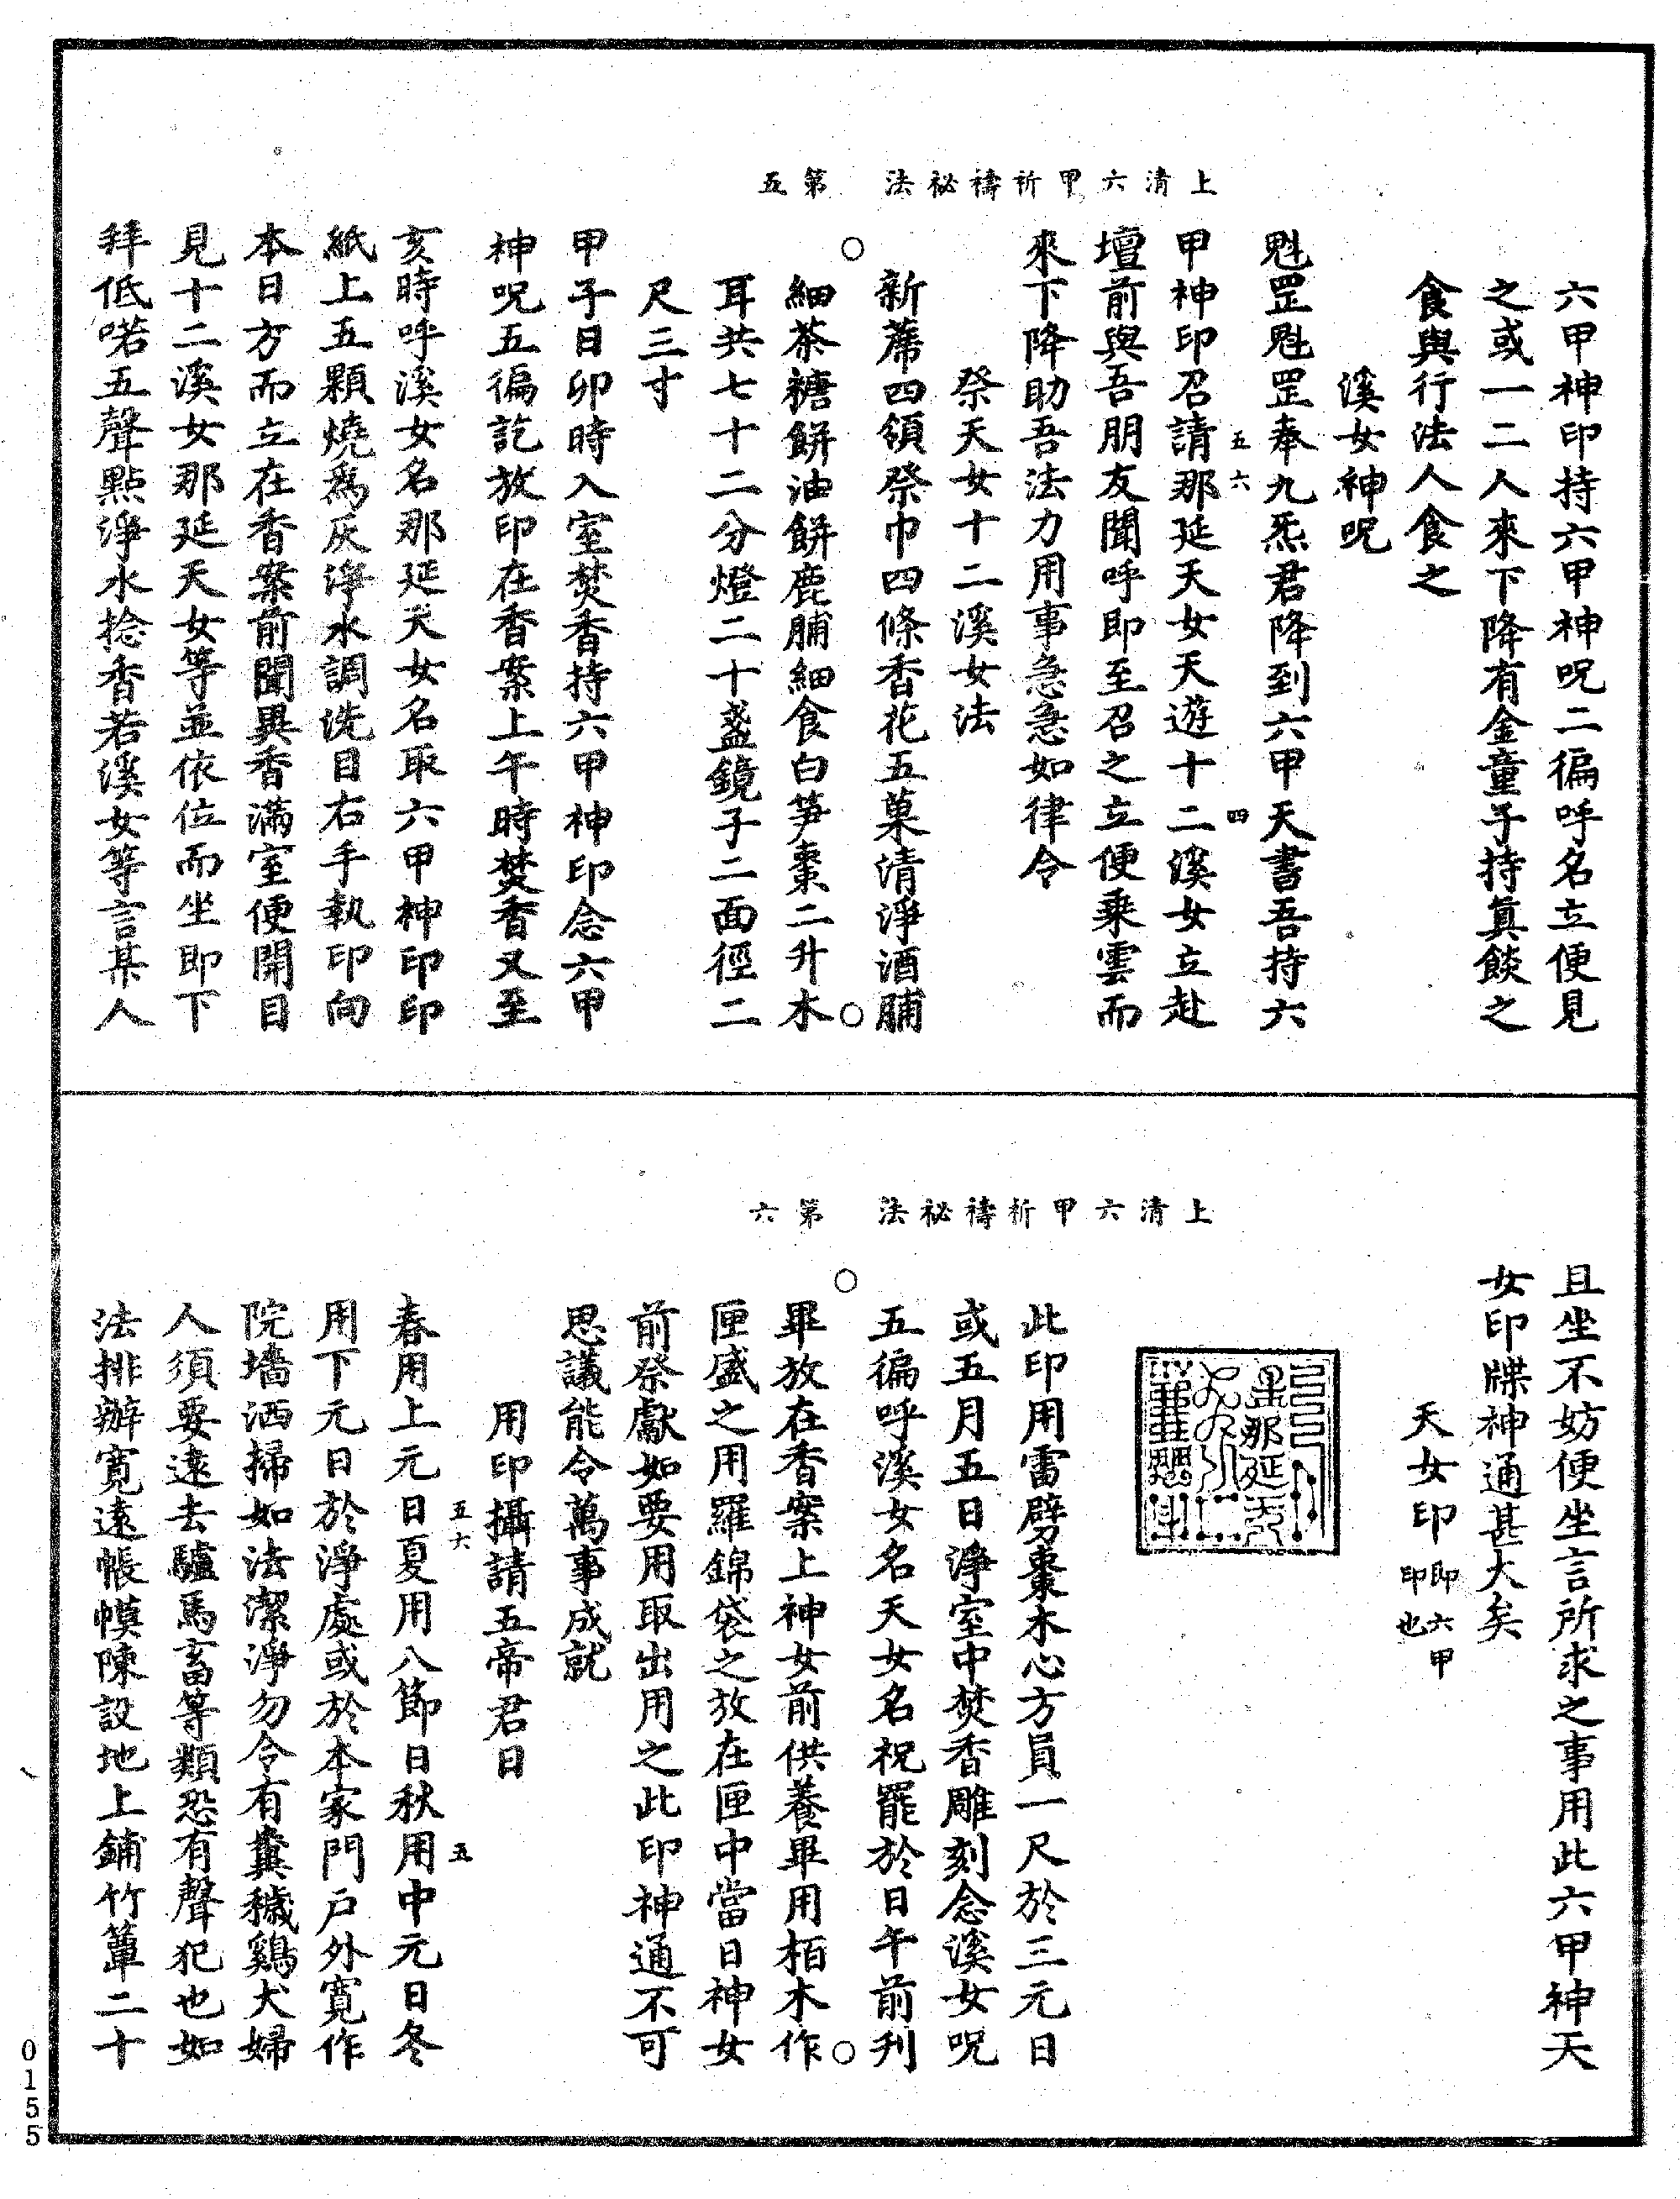 上清六甲祈禱祕法　第五
六甲神印持六甲神呪二徧呼名立便見
之或一二人來下降有金童子持真餤之
食與行法人食之
溪女神呪
魁罡魁罡奉九炁君降到六甲天書吾持六
五六　四
甲神印召請那延天女天遊十二溪女立赴
壇前與吾朋友聞呼即至召之立便乘雲而
來下降助吾法力用事急急如律令
祭天女十二溪女法
新蓆四領祭巾四條香花五菓清淨酒脯
○　○
細茶糖餅油餅鹿脯細食白笋棗二升木
耳共七十二分燈二十盞鏡子二面徑二
尺三寸
甲子日卯時入室焚香持六甲神印念六甲
神呪五徧訖放印在香案上午時焚香又至
亥時呼溪女名那延天女名取六甲神印印
紙上五顆燒為灰淨水調洗目右手執印向
本日方而立在香案前聞異香滿室便開目
見十二溪女那延天女等並依位而坐即下
拜低喏五聲點淨水捻香若溪女等言某人
上清六甲祈禱祕法　第六
且坐不妨便坐言所求之事用此六甲神天
女印牒神通甚大矣
天女印 即六甲
印也
此印用雷劈棗木心方員一尺於三元日
或五月五日淨室中焚香雕刻念溪女呪
五徧呼溪女名天女名祝罷於日午前刋
○　○
畢放在香案上神女前供養畢用栢木作
匣盛之用羅錦袋之放在匣中當日神女
前祭獻如要用取出用之此印神通不可
思議能令萬事成就
用印攝請五帝君日
五六　五
春用上元日夏用八節日秋用中元日冬
用下元日於淨處或於本家門戶外寬作
院墻洒掃如法潔淨勿令有糞穢鷄犬婦
人須要遠去驢馬畜等類恐有聲犯也如
法排辦寬遠帳幙陳設地上鋪竹簟二十
0155